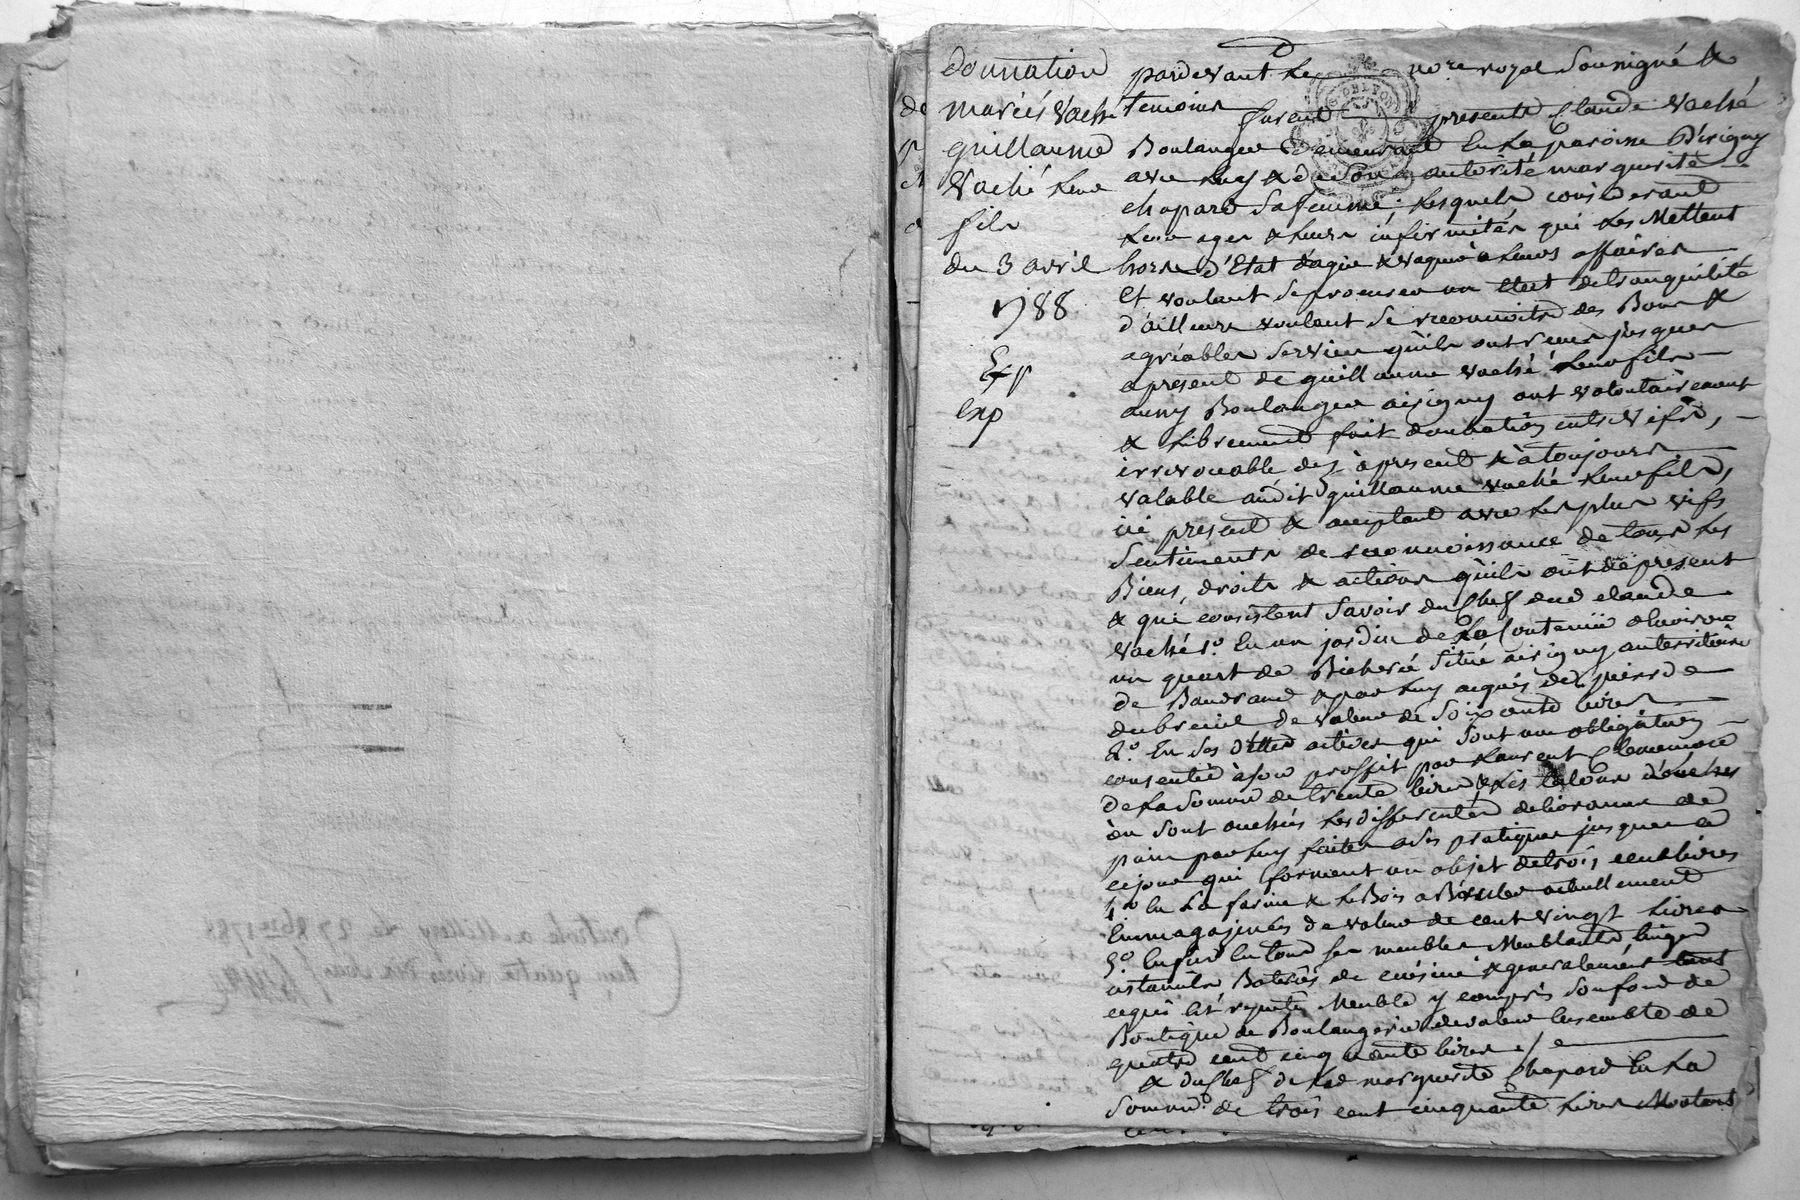 donnation
de mariés Vaché
guillaume
Vaché leur
fils
du 3 avril
1788
Exp
Exp
pardevant Le nore royal soussigné &
temoins furent presents Claude Vaché
Boulanger demeurant En La paroisse D'irigny
avec Luy & de son autorité marguerite
chapard sa femme. Lesquels considerant
Leur ages & Leurs infirmités qui Les Mettent
hors d'Etat d'agir & vaquer a Leurs affaires
Et voulant se procurer un Etat de tranquilité
d'ailleurs voulant se reconnoitre des Bons &
agréables services qu'ils ont reçus jusques
a present de guillaume vaché Leur fils
aussy Boulanger a irigny ont volontairement
& Librement fait donnation entre vifs,
irrevocable dez à present & à toujours
valable audit guillaume vaché Leur fils,
ici present & acceptant avec Les plus vifs
Sentiments de reconnoissance de tous Les
Biens, droits & actions qu'ils ont de present
& qui consistent Savoir du Chef dud claude
vaché 1.° En un jardin de La Contenue d'environ
un quart de Bicherée situé a irigny au territoire
de Bandrand & par Luy acquis de pierre
dubreuil de valeur de soixante livres
2.° En ses dettes actives qui sont une obligation
consentie à son proffit par Laurent
de La somme de trente livres & Les talons d'ouches
où sont ouchés Les differentes delivrances de
pain par Luy faites a des pratiques jusques a
ce jour qui forment un objet de trois cent livres
4° En La farine & Le Bois a Bruler actuellement
Emmagazinés de valeur de cent vingt Livres
5.° Enfin En tous ses meubles Meublants, linges
ustancils, Batteries de cuisine & generalement tout
ce qui Est reputé Meuble y compris son fond de
Boutique de Boulangerie de valeur Ensemble de
quatre cent cinquante livres
& du Chef de Lad marguerite Chapard En La
somme de trois cent cinquante Livres Montant
Controle a Millery Le 27 8bre 1788
Reçu quatre livres dix sous